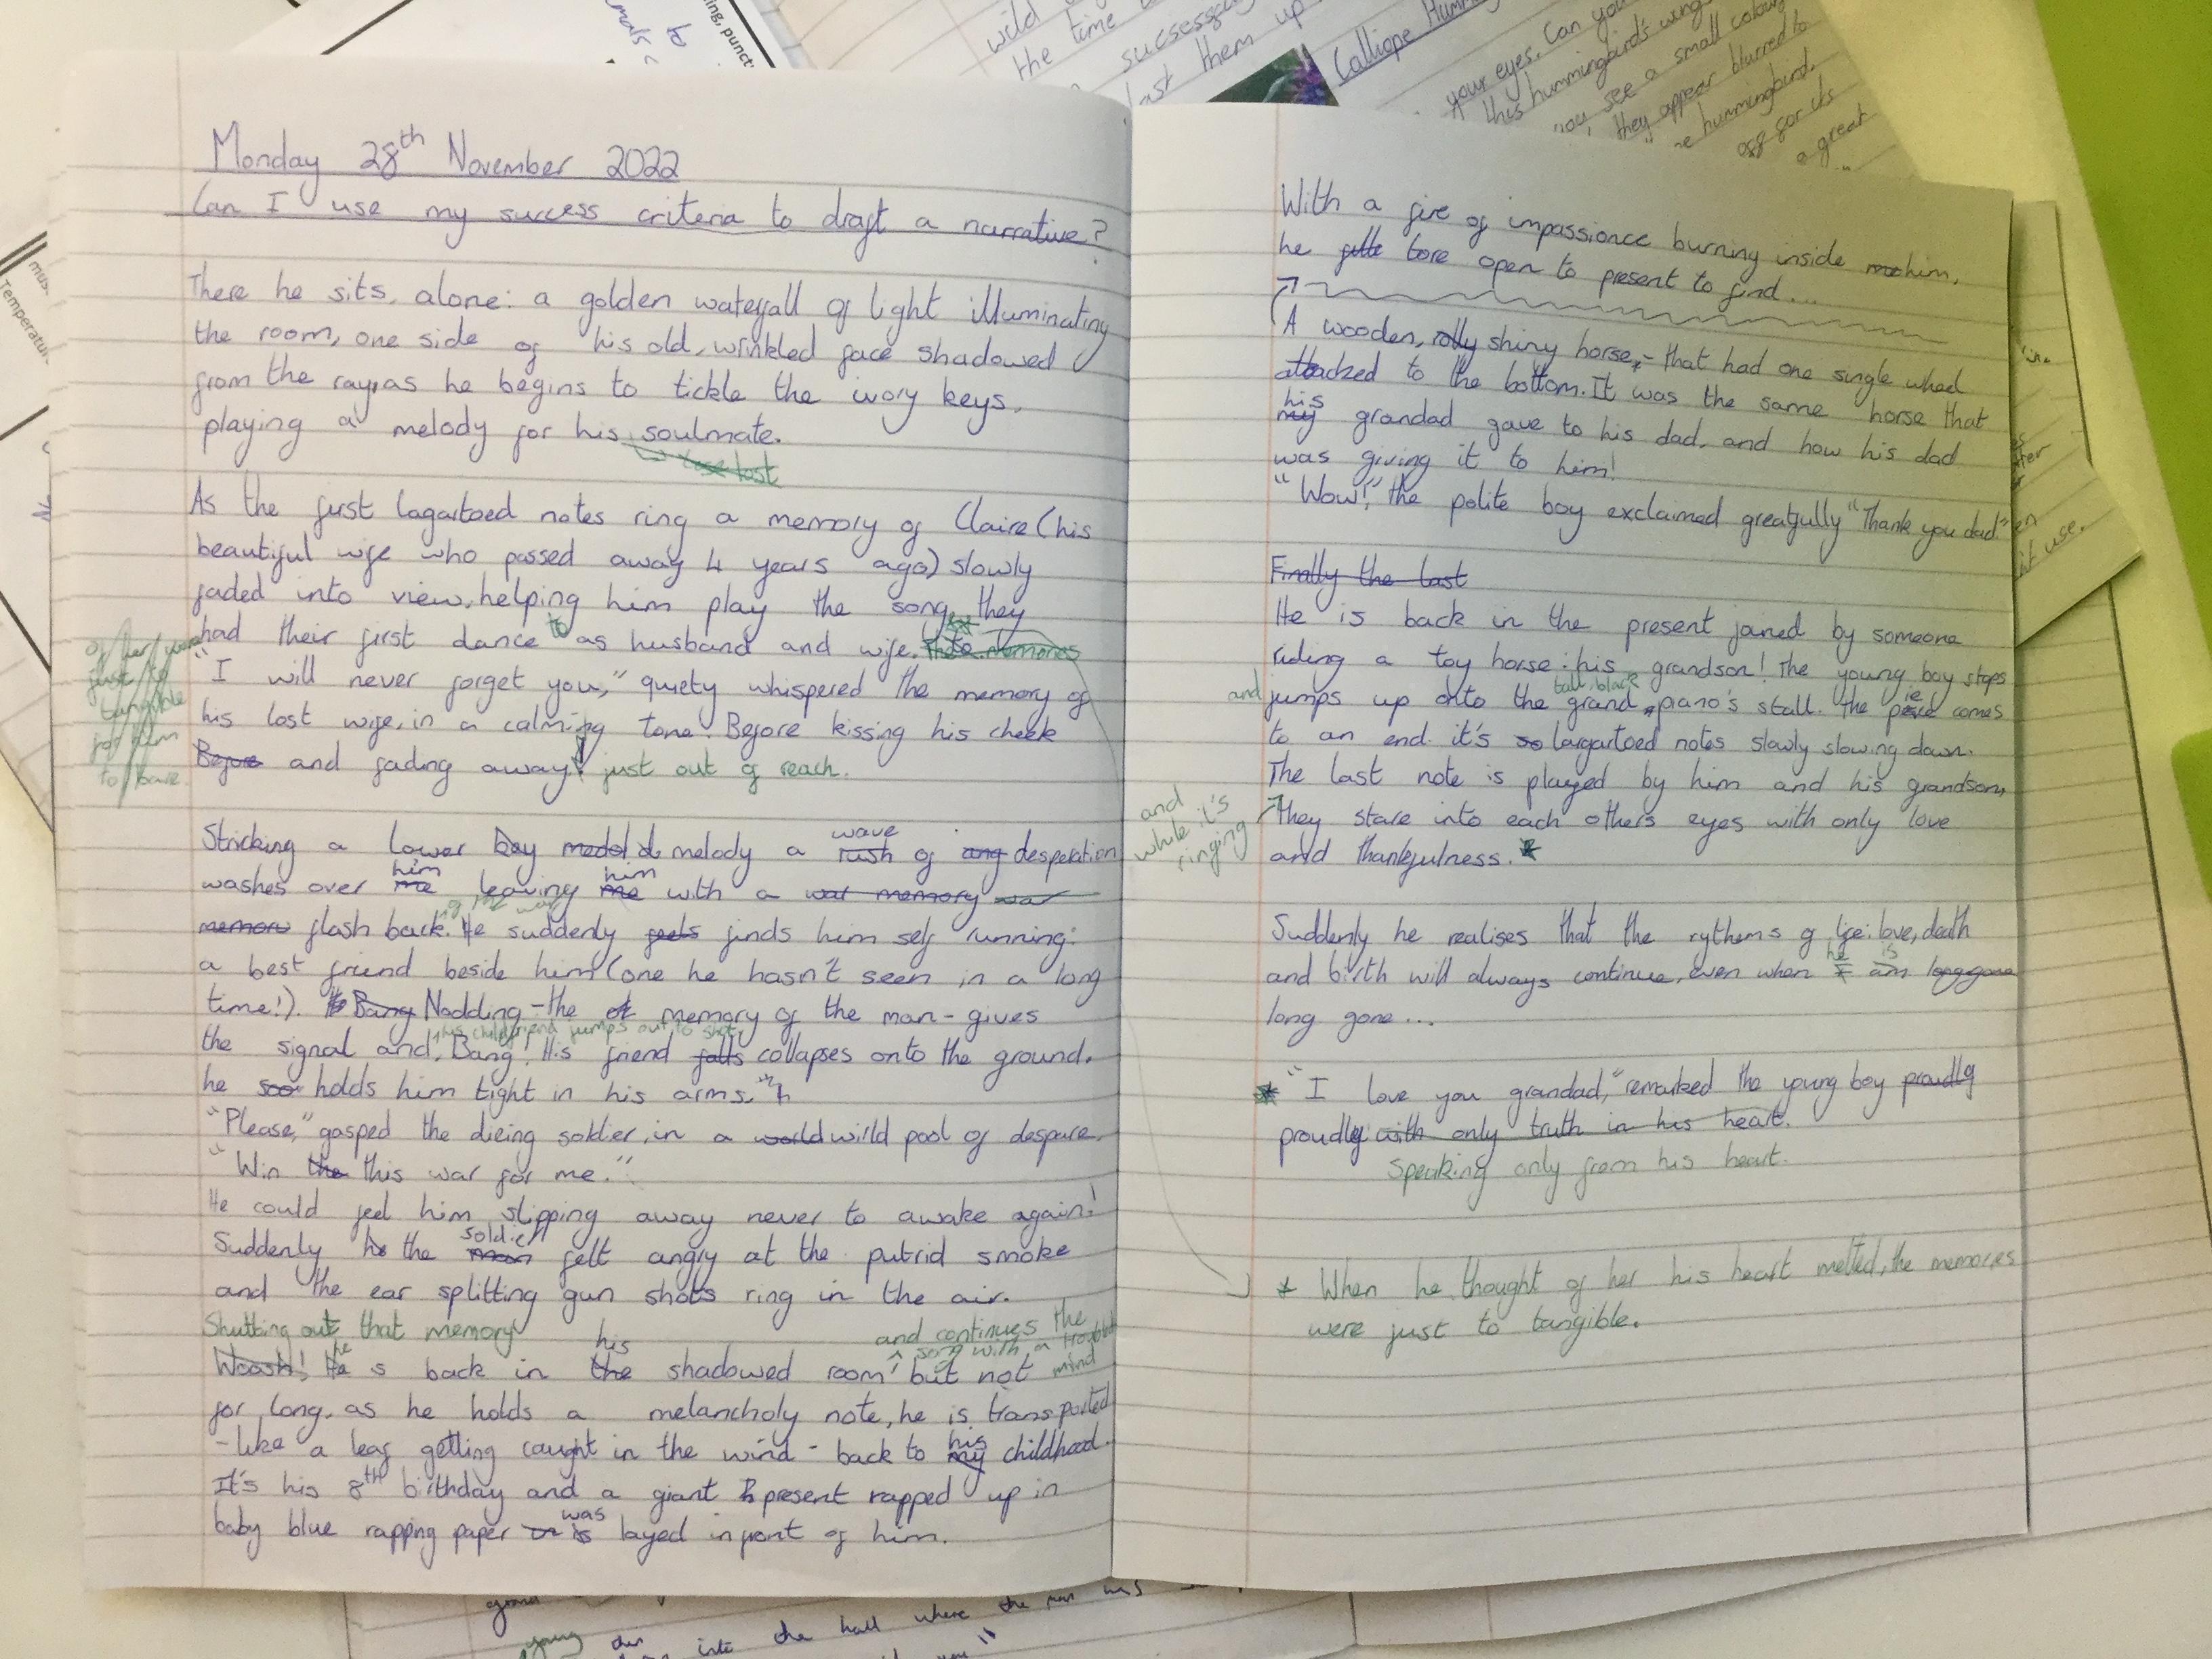 Monday 28th November 2022
Can I use my success criteria to draft a narrative?
There he sits, alone: a golden waterfall of light illuminating
the room, one side of his old, wrinkled face shadowed
from the rays, as he begins to tickle the ivory keys,
playing a melody for his soulmate.
lost
As the first lagartoed notes ring a memory of Claire (his
beautiful wife who passed away 4 years ago) slowly
faded into view, helping him play the song they
had their first dance to as husband and wife. These memories
of her were
just to
tangible
for him
to bare.
"I will never forget you," quiety whispered the memory of
his lost wife, in a calming tone. Before kissing his cheek
Before and fading away, just out of reach.
wave
Stricking a lower melody a rush of ang desperation
him him
washes over me leaving me with a war memory war
of the war
memory flash back. He suddenly feels finds him self running:
a best friend beside him (one he hasn't seen in a long
time!). Bang Nodding - the of memory of the man - gives
his friend jumps out to shot,
the signal and, Bang! His friend falls collapses onto the ground.
he soo holds him tight in his arms.
"Please," gasped the dieing soldier, in a world wirld pool of despare,
"Win the this war for me."
He could feel him slipping away never to awake again!
soldier
Suddenly he the man felt angry at the putrid smoke
and the ear splitting gun shots ring in the air.
Shutting out that memory
his and continues the
song with a troubled
mind
Woosh! He he s back in the shadowed room but not
for long, as he holds a melancholy note, he is transported
his
- like a leaf getting caught in the wind - back to my childhood.
It's his 8th birthday and a giant present rapped up in
was
baby blue rapping paper on is layed infront of him.
With a fire of impassionce burning inside me him,
he tore open to present to find...
A wooden, rolly shiny horse, - that had one single wheel
attacked to the bottom. It was the same horse that
his
my grandad gave to his dad, and how his dad
was giving it to him!
"Wow!," the polite boy exclaimed greatfully "Thank you dad"
Finally the last
He is back in the present joined by someone
riding a toy horse: his grandson! The young boy stops
tall, black
and jumps up onto the grand piano's stall. The piece comes
to an end it's so largartoed notes slowly slowing down.
The last note is played by him and his grandson,
and
while it's
ringing
they stare into each others eyes with only love
and thankfulness. *
Suddenly he realises that the rythems of life: love, death
he is
and birth will always continue, even when I am long gone
long gone...
* "I love you grandad," remarked the young boy proudly
proudly with only truth in his heart.
Speaking only from his heart.
* When he thought of her his heart melted, the memories
were just to tangible.
wild
the time
sucsessfu
them up
Calliope Humm
your eyes. Can you
this hummingbird's wing
you see a small colou
they appear blurred to
hummingbird.
for its
a great
ing, punct
to
mus
Temperatur
it use.
into the hall where the man was